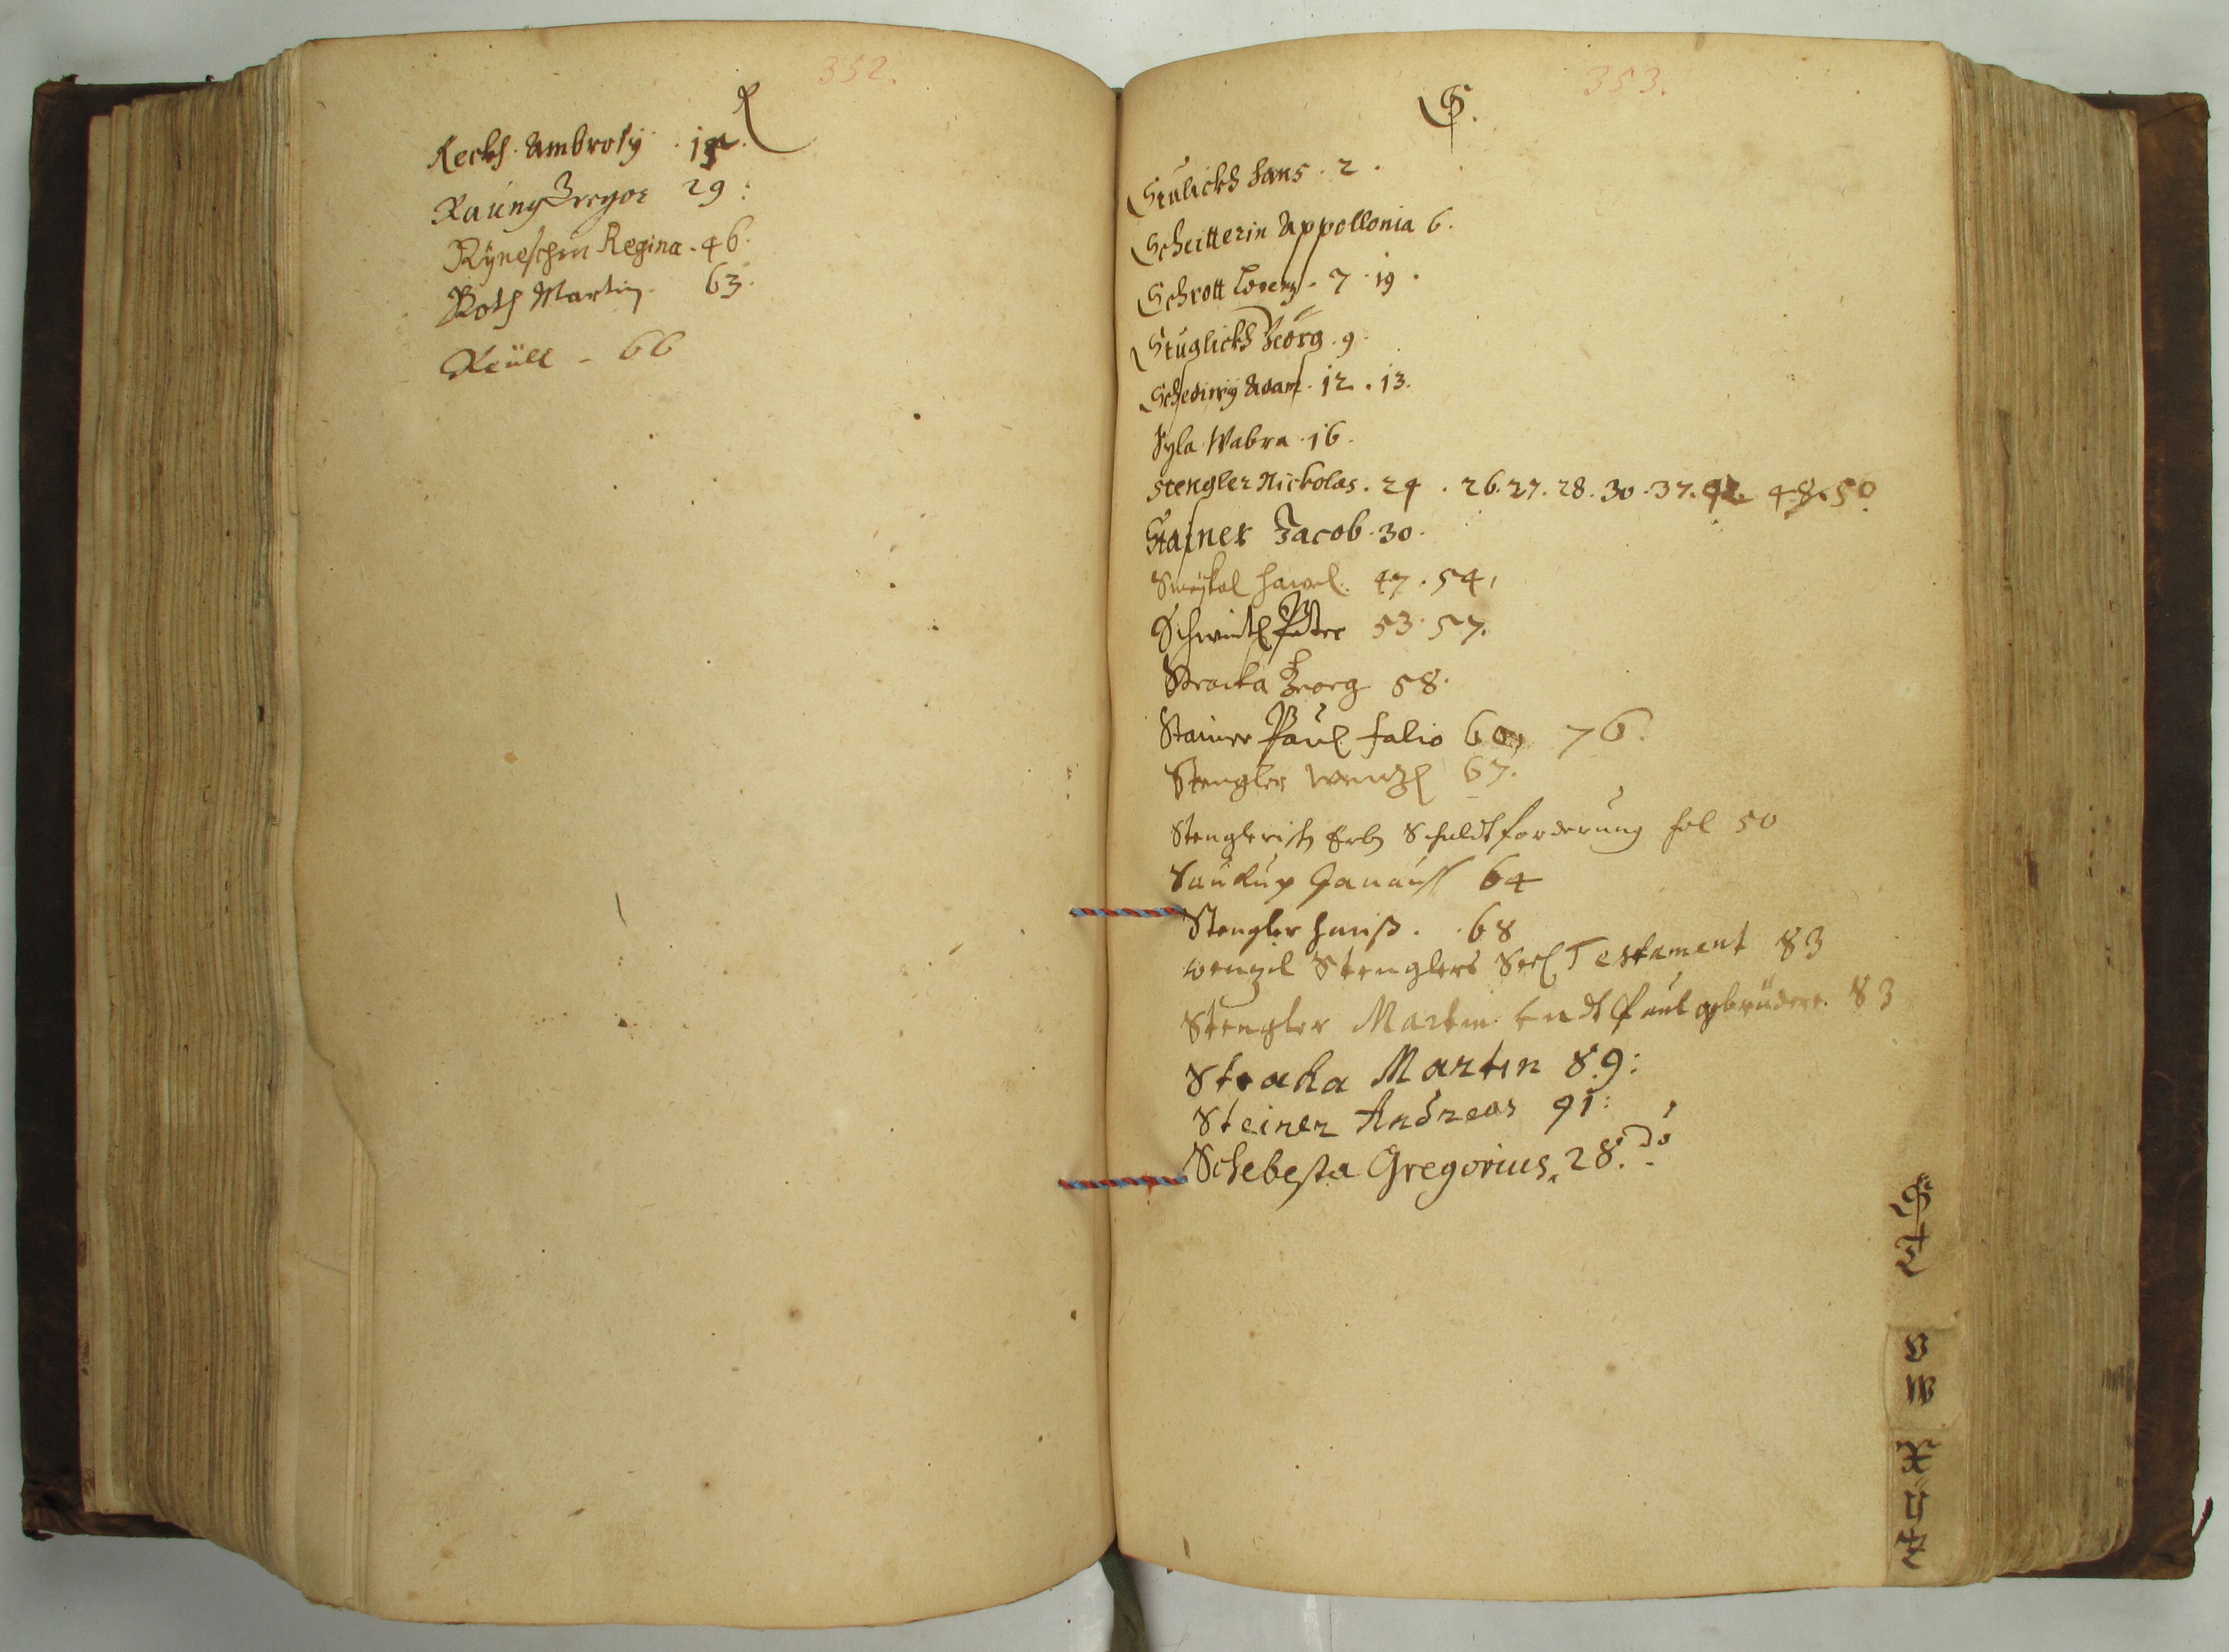 352.
R
Reckh Ambrosÿ . 15.
Raunÿ Gregor 29 :
Rÿneschin Regina . 46.
Roth Martin 63.
Reüll - 66
353.
S.
Stulickh Hans . 2 .
Scheitterin Appollonia 6.
Schrott Lorenz . 7 . 19 .
Stuglickh Georg . 9 .
Schediwÿ Adam . 12 . 13.
Syla Wabra . 16 .
Stengler Nickolas . 24 . 26. 27. 28. 30 . 37. 42. 48. 50.
Stainer Jacob . 30 .
Smeÿkal Hawel . 47 . 54 ,
Schwietz Peter 53. 57.
Straka Georg 58.
Stainer Paul folio 60, 76.
Stengler Wenzl 67.
Stenglerisch Erb Schuldt forderung fol 50
Saukup Janauß 64
Stengler Hanß . . 68
Wenzil Stenglers Seel Testament 83
Stengler Martin undt Paul gebrüdere. 83
Straka Martin 89 :
Steiner Andreas 91 :
Schebesta Gregorius. 28. do
S
T
V
W
X
Y
Z